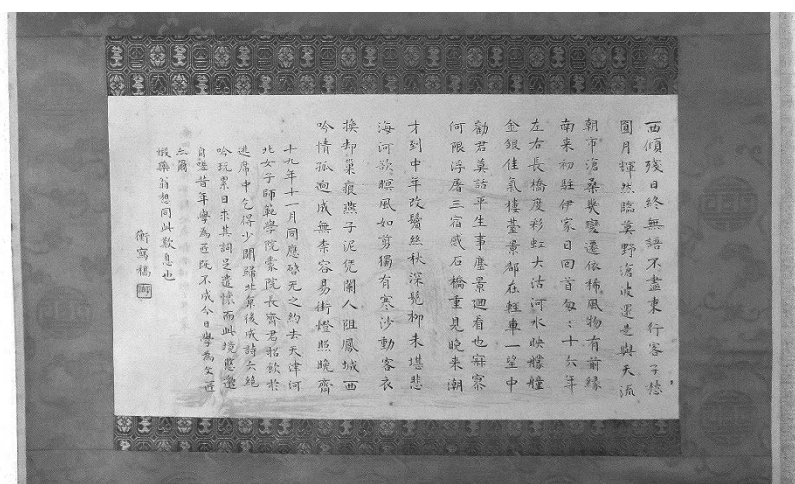 西傾殘日終無語不盡東行客子愁
圓月輝然臨莫野滄波還是與天流
朝市滄桑幾變遷依稀風物有前緣
南来初駐伊家日回首匆:十六年
左右長橋度彩虹大沽河水映艨艟
金銀佳氣樓臺景都在輕車一望中
勸君莫話平生事塵景迴看也寂寥
何限浮屠三宿感石橋重見晚来潮
才到中年改鬢絲秋深髡柳未堪悲
海河欲暝風如剪獨有寒沙動客衣
換却巢痕燕子泥凭闌人阻鳳城西
吟情孤迥成無柰容易街燈照晚齊
十九年十一月同應无之約去天津河
北女子師範學院蒙院長齊君招飲於
逃席中乞得少閒歸北京後成詩六絕
吟玩景日求其詞足遣懷而此境
自昔年學為匠既不成今日學為文匠
云爾
藥翁想同此歎息也
衡寫稿